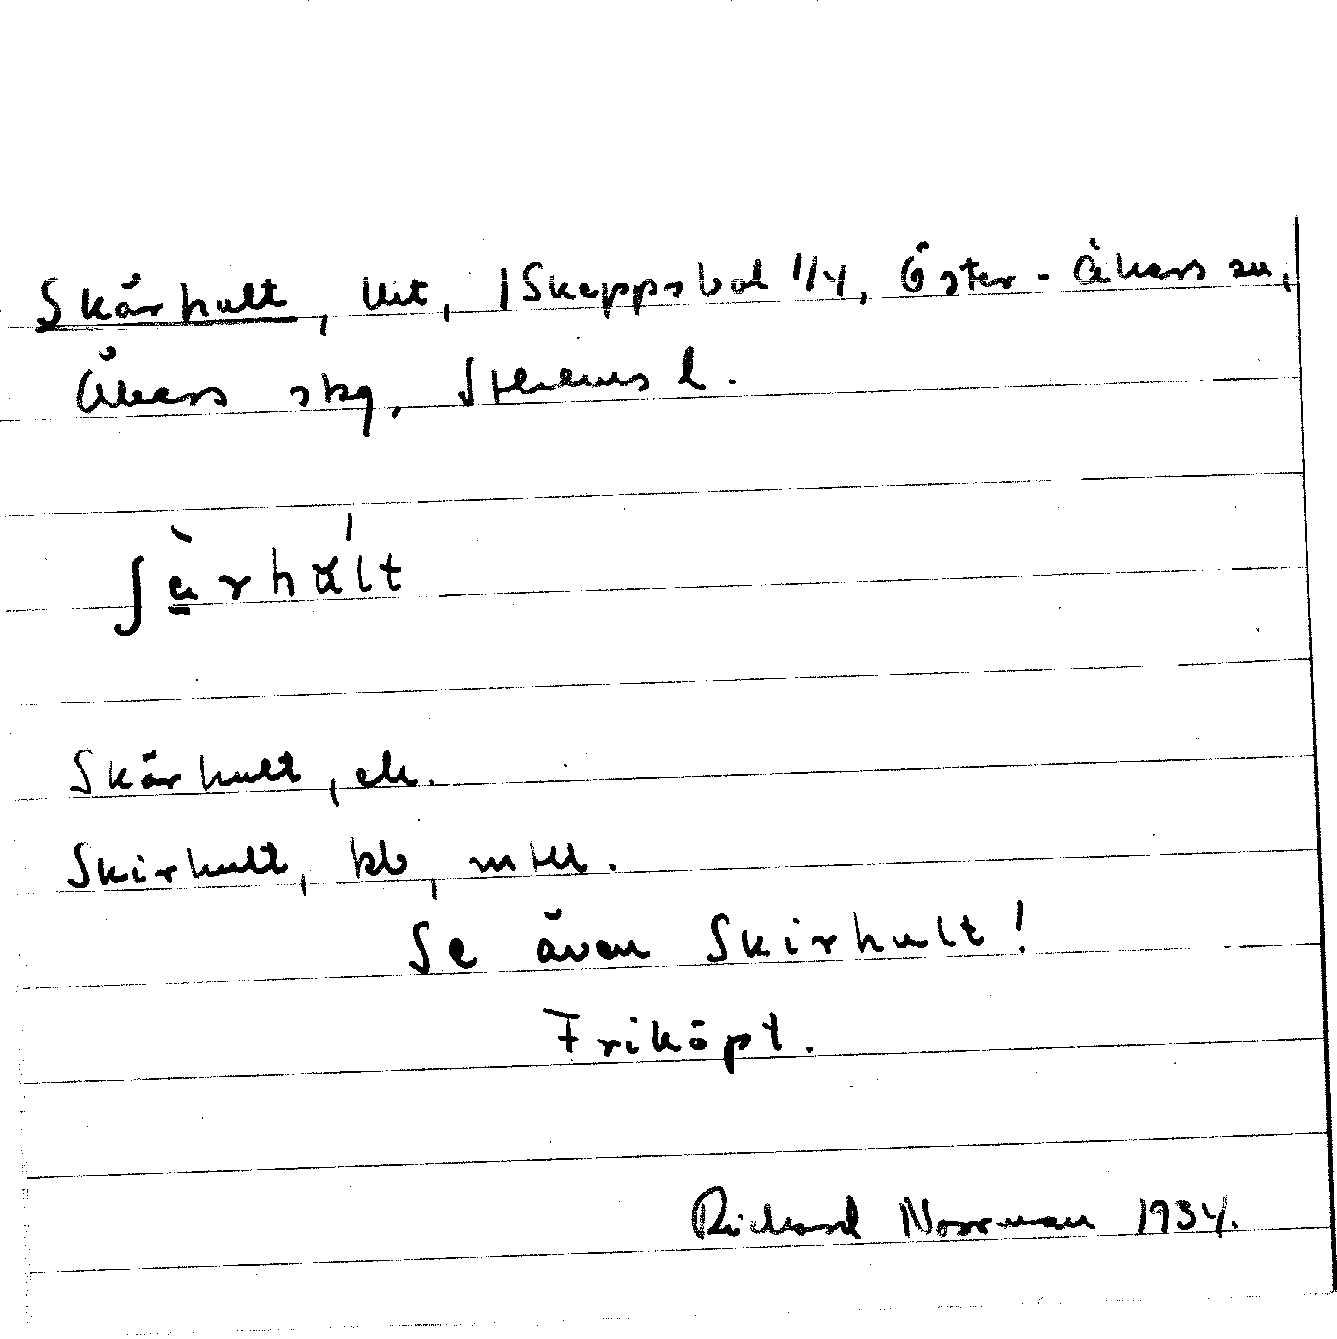 Skärhult, lht, /Skeppsbol 1/4, Öster-Åkers sn,
Åkers skg, Sthlms l.
ʃä̀rhúlt
Skärhult, ek.
Skirhult, kb, mtll.
Se även Skirhult!
Friköpt.
Richard Norrman 1934.